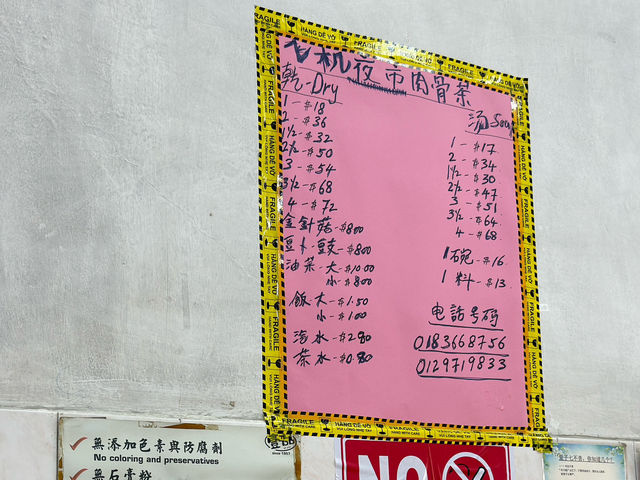 飞机夜市肉骨茶
乾-Dry
1 - #18
2 - #36
1½ - #32
2½ - #50
3 - #54
3½ - #68
4 - #72
金針菇 - #800
豆卜-豆支 - #800
油菜 - 大 - #1000
小 - #800
飯大 - #1.50
小 - #100
汽水 - #2.80
茶水 - #0.80
汤 Soup
1 - #17
2 - #34
1½ - #30
2½ - #47
3 - #51
3½ - #64
4 - #68
1碗 - #16
1料 - #13
电話号码
0183668756
0129719833
FRAGILE
HÀNG DỄ VỠ
VUI LÒNG NHẸ TAY
HAND WITH CARE
無添加色素與防腐劑
No coloring and preservatives
無石膏粉
since 1957
NO